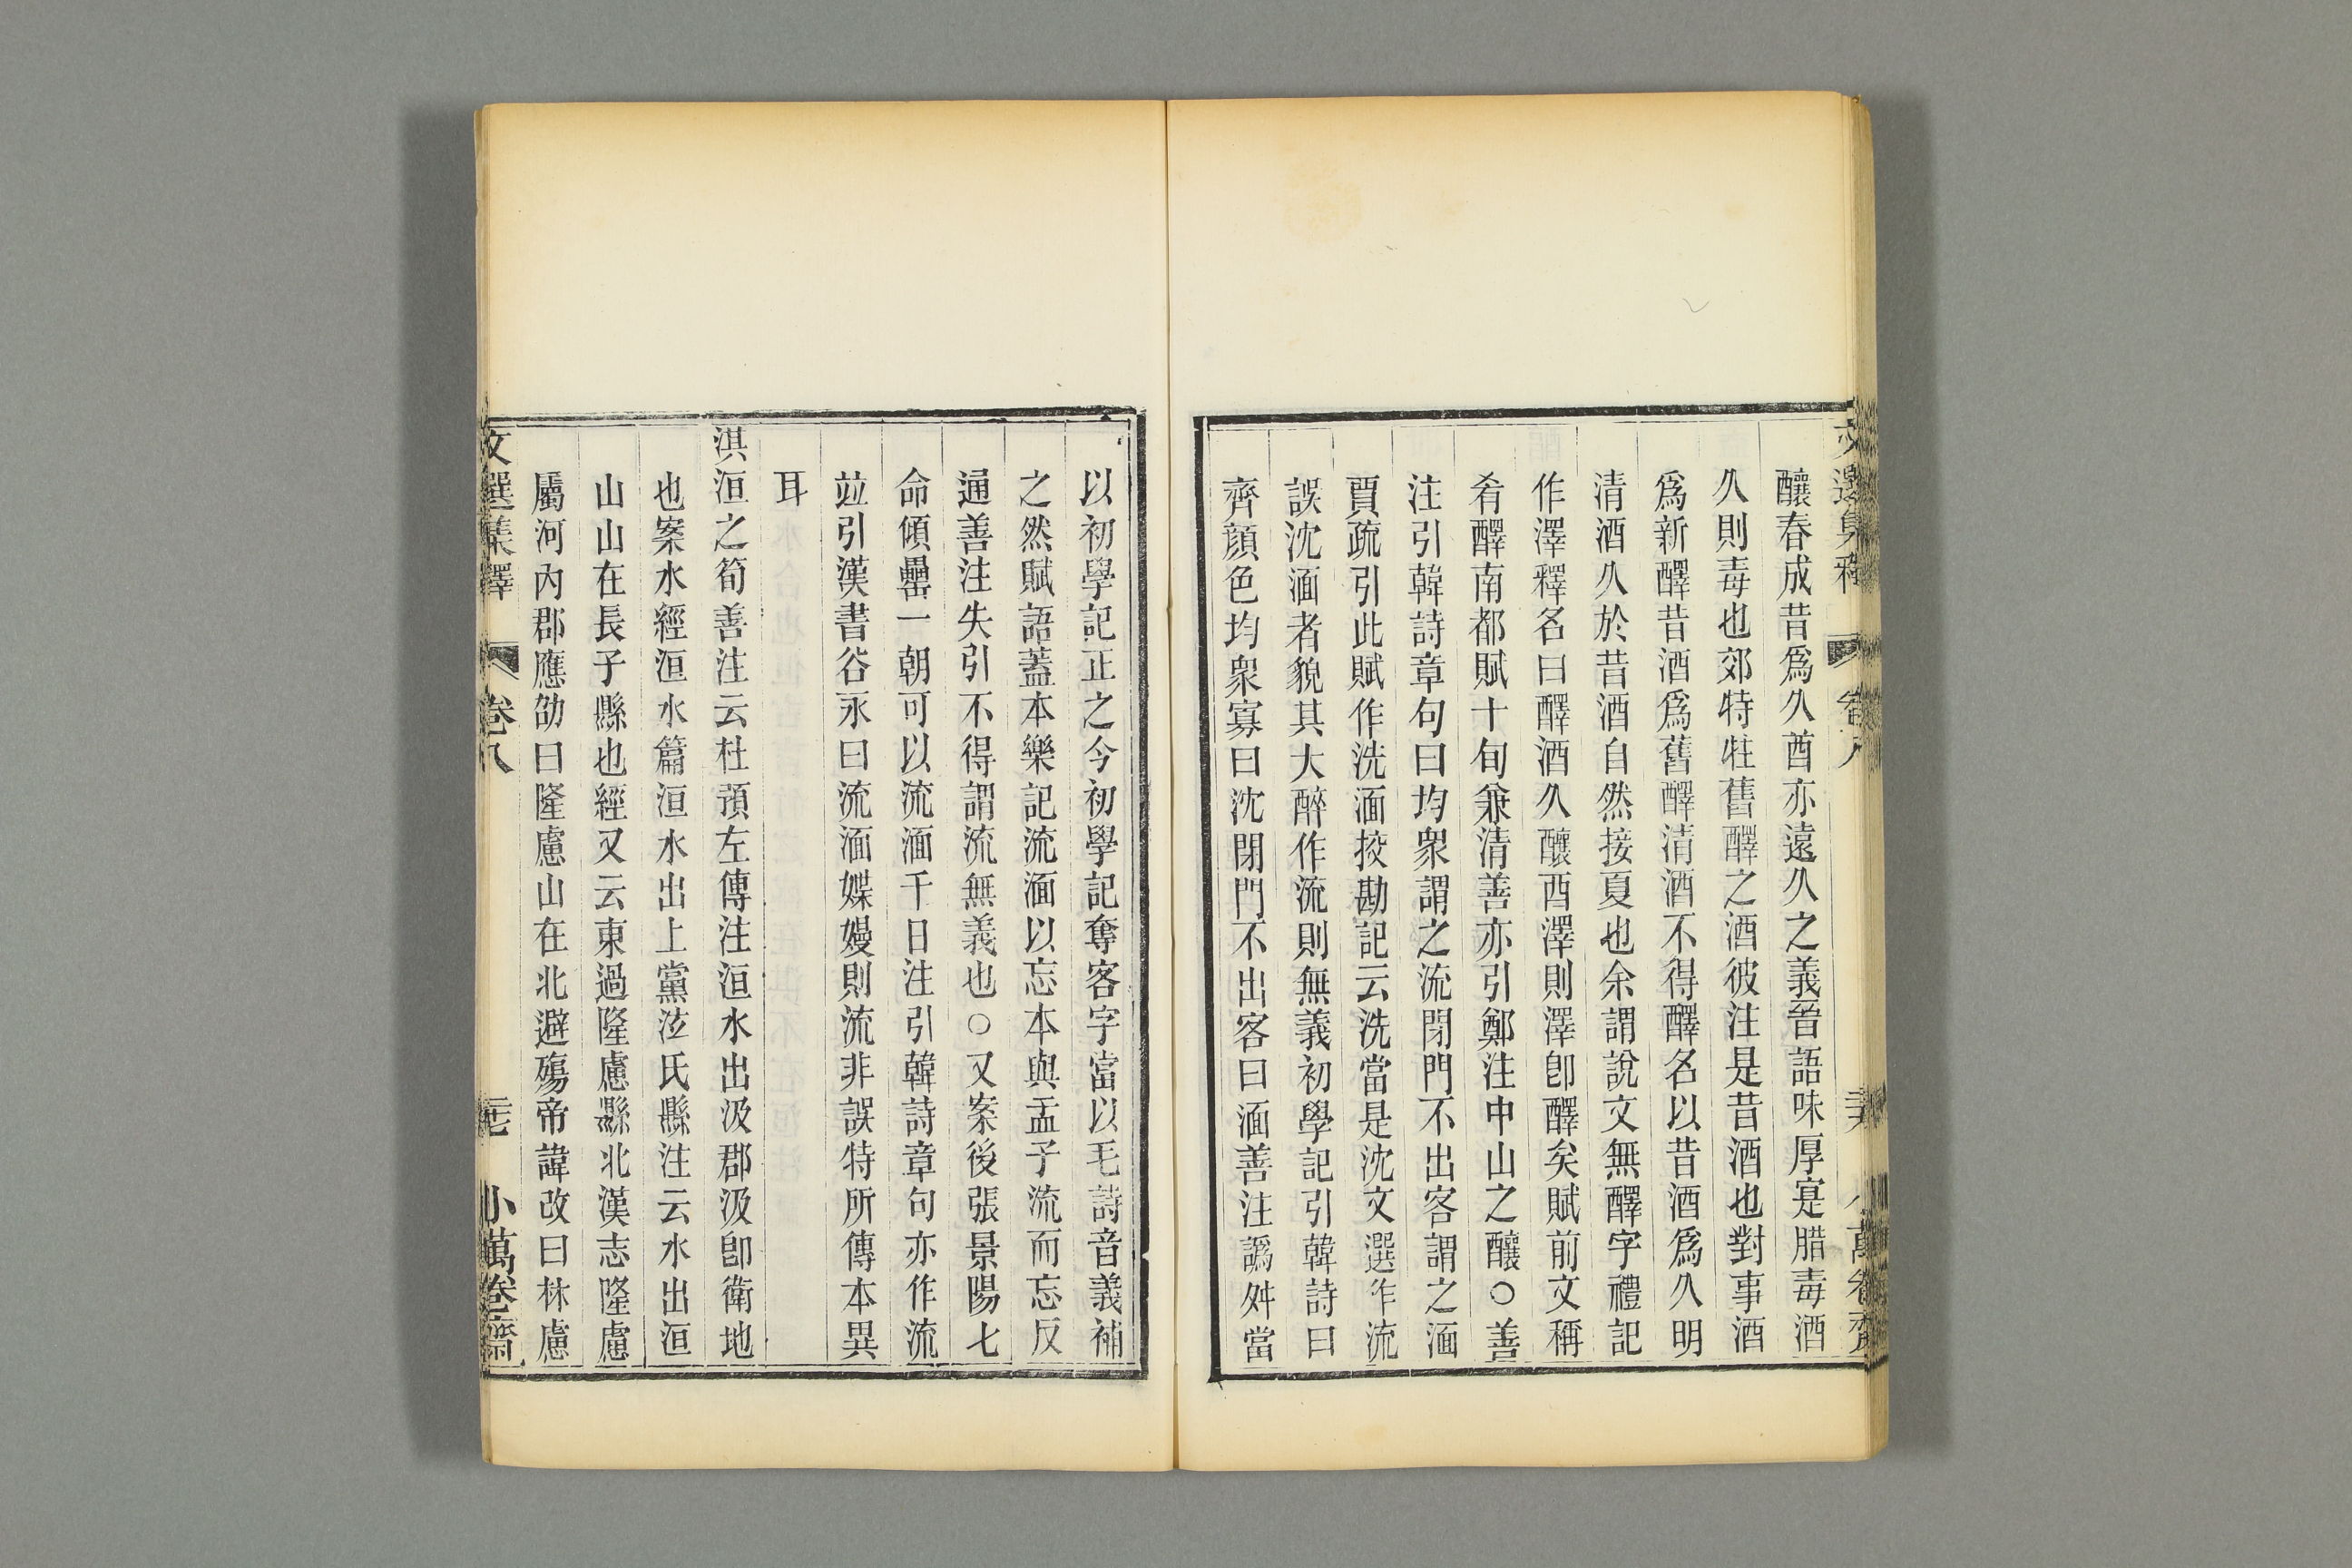 釀春成昔爲久酋亦遠久之義晉語味厚寔腊毒酒
久則毒也郊特牲舊醳之酒彼注是昔酒也對事酒
爲新醳昔酒爲舊醳清酒不得醳名以昔酒爲久明
清酒久於昔酒自然接夏也余謂說文無醳字禮記
作澤釋名曰醳酒久釀酉澤則澤卽醳矣賦前文稱
肴醳南都賦十旬兼清善亦引鄭注中山之釀○善
注引韓詩章句曰均衆謂之流閉門不出客謂之湎
賈疏引此賦作洗湎挍勘記云洗當是沈文選作流
誤沈湎者貌其大醉作流則無義初學記引韓詩曰
齊顔色均衆寡曰沈閉門不出客曰湎善注譌舛當
以初學記正之今初學記奪客字當以毛詩音義補
之然賦語蓋本樂記流湎以忘本與孟子流而忘反
通善注失引不得謂流無義也○又案後張景陽七
命傾罍一朝可以流湎千日注引韓詩章句亦作流
竝引漢書谷永曰流湎媟嫚則流非誤特所傳本異
耳
淇洹之筍善注云杜預左傳注洹水出汲郡汲卽衛地
也案水經洹水篇洹水出上黨泫氏縣注云水出洹
山山在長子縣也經又云東過隆慮縣北漢志隆慮
屬河內郡應劭曰隆慮山在北避殤帝諱改曰林慮
文選集釋 卷八 小萬卷齋